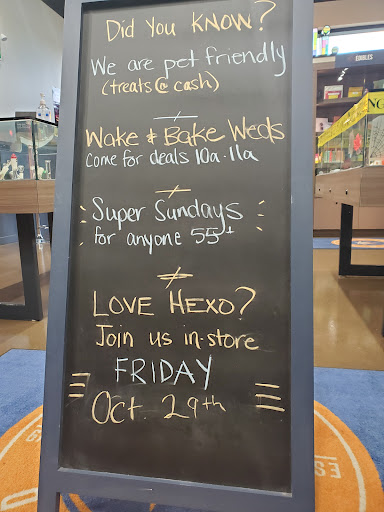 Did You KNOW?
We are pet friendly
(treats @ cash)
Wake & Bake Weds
Come for deals 10a-11a
Super Sundays
for anyone 55+
LOVE HEXO?
Join us in-store
FRIDAY
Oct. 29th
EDIBLES